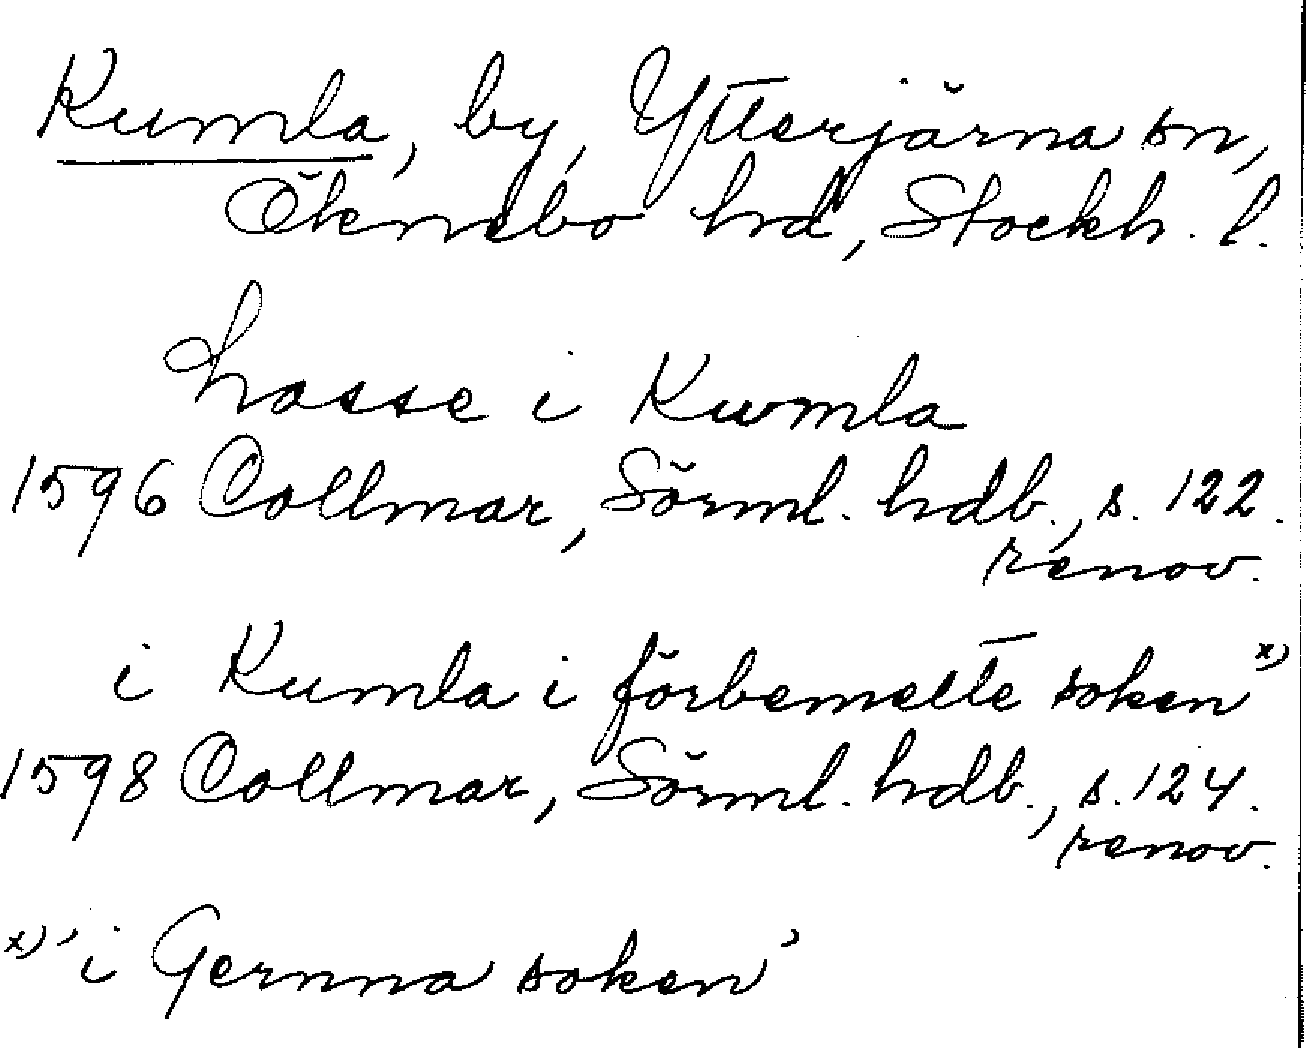 Kumla, by, Ytterjärna sn,
Öknebo hd, Stockh. l.
Lasse i Kumla
1596 Collmar, Sörml. hdb., s. 122.
renov.
i Kumla i förbemelte soken x)
1598 Collmar, Sörml. hdb., s. 124.
renov.
x) 'i Gernna soken'